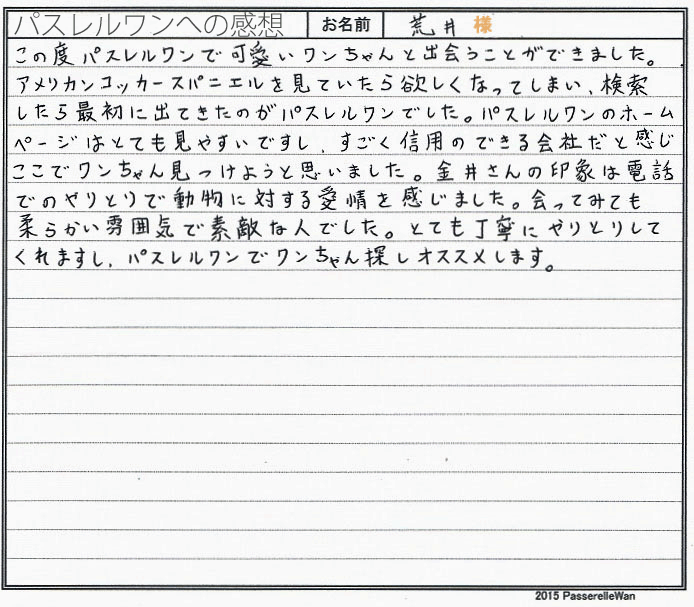 パスレルワンへの感想 お名前 荒井 様
この度パスレルワンで可愛いワンちゃんと出会うことができました。
アメリカンコッカースパニエルを見ていたら欲しくなってしまい、検索
したら最初に出てきたのがパスレルワンでした。パスレルワンのホーム
ページはとても見やすいですし、すごく信用のできる会社だと感じ
ここでワンちゃん見つけようと思いました。金井さんの印象は電話
でのやりとりで動物に対する愛情を感じました。会ってみても
柔らかい雰囲気で素敵な人でした。とても丁寧にやりとりして
くれますし、パスレルワンでワンちゃん探しオススメします。
2015 PasserelleWan